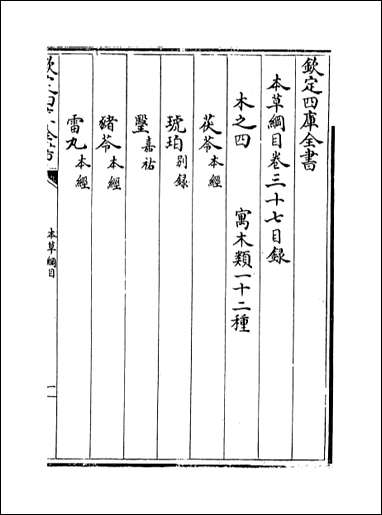 欽定四庫全書
本草綱目卷三十七目録
木之四 寓木類一十二種
茯苓本經
琥珀别録
瑿嘉祐
豬苓本經
雷丸本經
欽定四庫全書
本草綱目
一